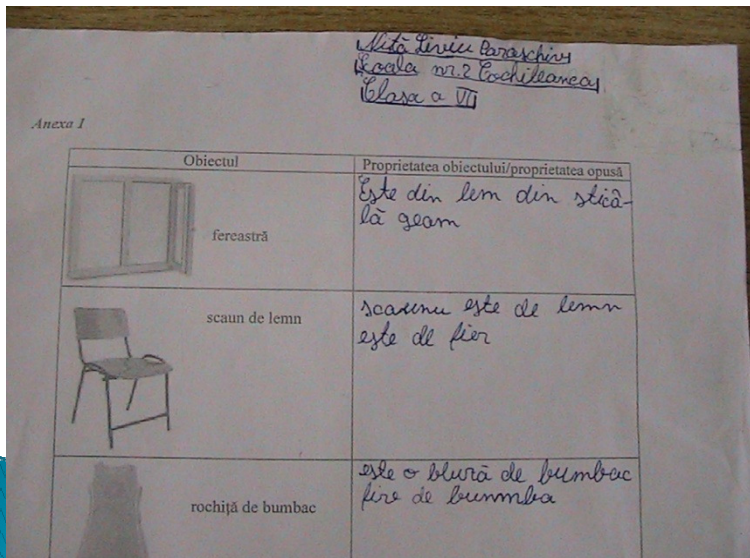 Niță Liviu Paraschiv
Școala nr.2 Cochileanca
Clasa a VII
Anexa 1
Obiectul
Proprietatea obiectului/proprietatea opusă
fereastră
Este din lem din stică-
lă geam
scaun de lemn
scaunu este de lemn
este de fier
rochiță de bumbac
este o blură de bumbac
fire de bunmba